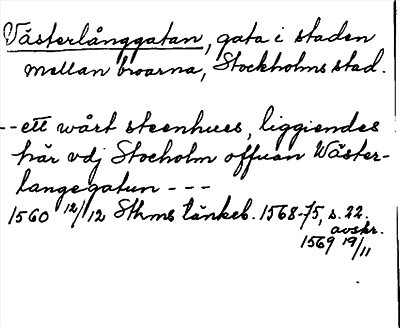 Västerlånggatan, gata i staden
mellan broarna, Stockholms stad.
--ett wårt steenhues, liggiendes
här vdj Stocholm offuan Wäster-
langegatun ---
1560 12/12 Sthms tänkeb. 1568-75, s. 22.
avskr.
1569 19/11